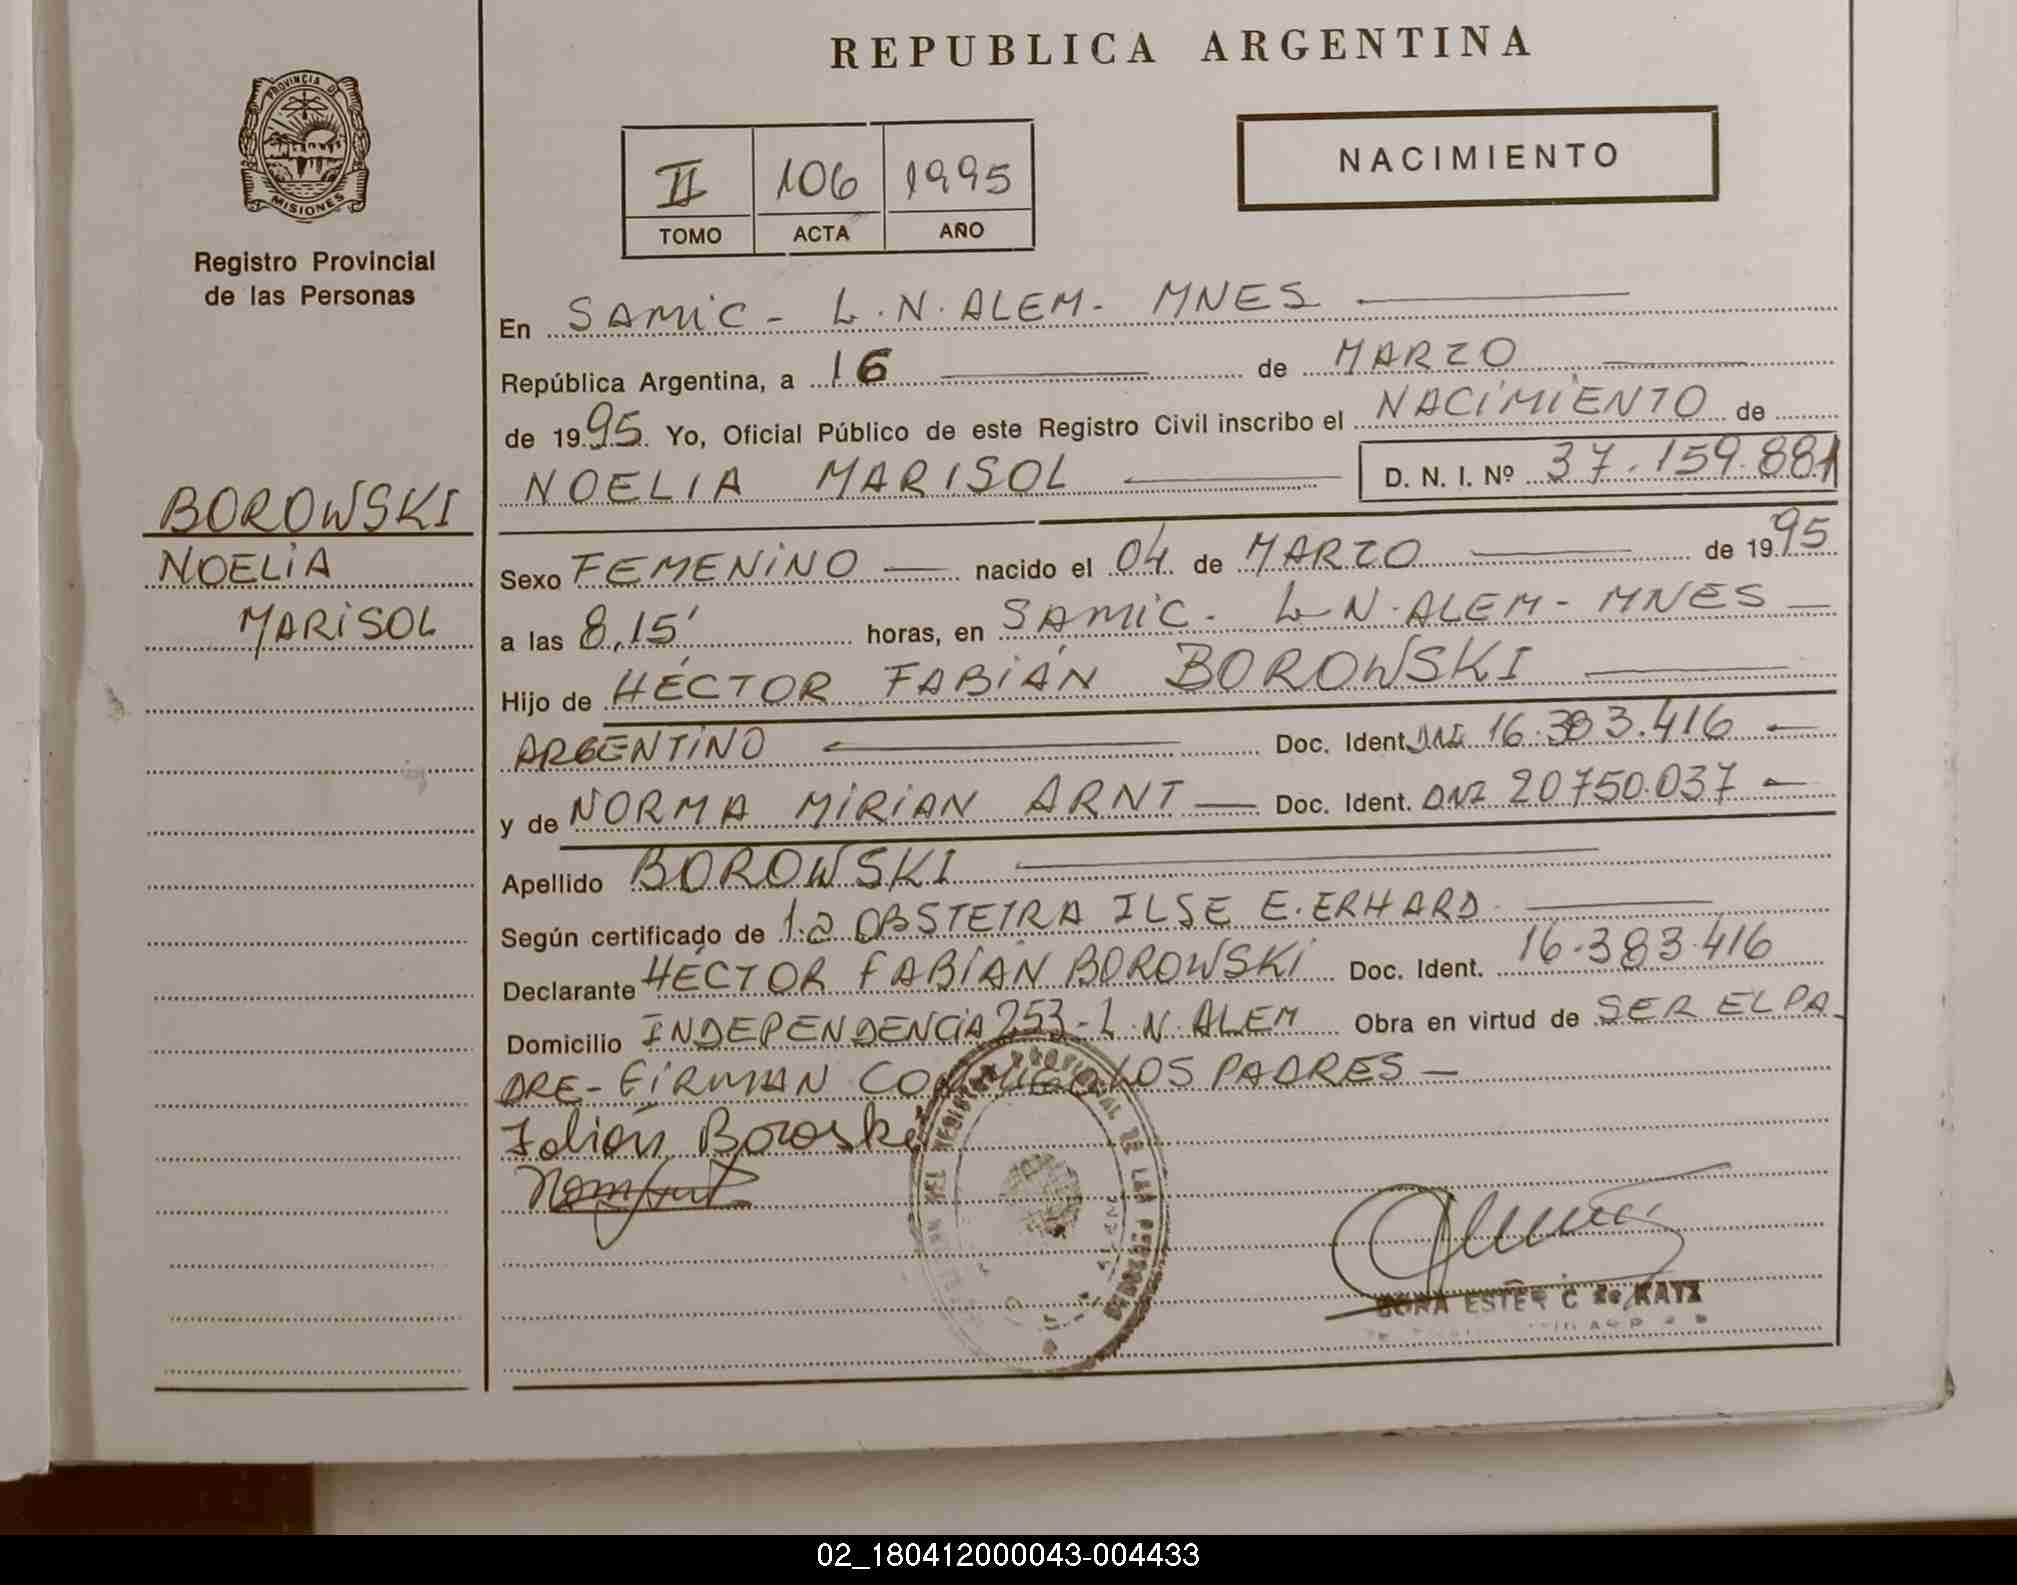 REPUBLICA ARGENTINA
PROVINCIA D
MISIONES
Registro Provincial
de las Personas
II 106 1995
TOMO ACTA AÑO
NACIMIENTO
BOROWSKI
NOELIA
MARISOL
En SAMIC - L.N. ALEM - MNES
República Argentina, a 16 de MARZO
de 1995 Yo, Oficial Público de este Registro Civil inscribo el NACIMIENTO de
NOELIA MARISOL D. N. I. Nº 37.159.881
Sexo FEMENINO nacido el 04 de MARZO de 1995
a las 8,15' horas, en SAMIC - L-N. ALEM - MNES
Hijo de HÉCTOR FABIÁN BOROWSKI
ARGENTINO Doc. Ident. DNI 16.383.416
y de NORMA MIRIAN ARNT Doc. Ident. DNI 20750.037
Apellido BOROWSKI
Según certificado de 1.a OBSTETRA ILSE E. ERHARD
Declarante HÉCTOR FABIÁN BOROWSKI Doc. Ident. 16-383.416
Domicilio INDEPENDENCIA 253 - L.N. ALEM Obra en virtud de SER EL PA
DRE - FIRMAN CONMIGO LOS PADRES -
Fabián Boroski
DEL REGISTRO PROVINCIAL DE LAS PERSONAS
ESTER C de KATZ
02_180412000043-004433